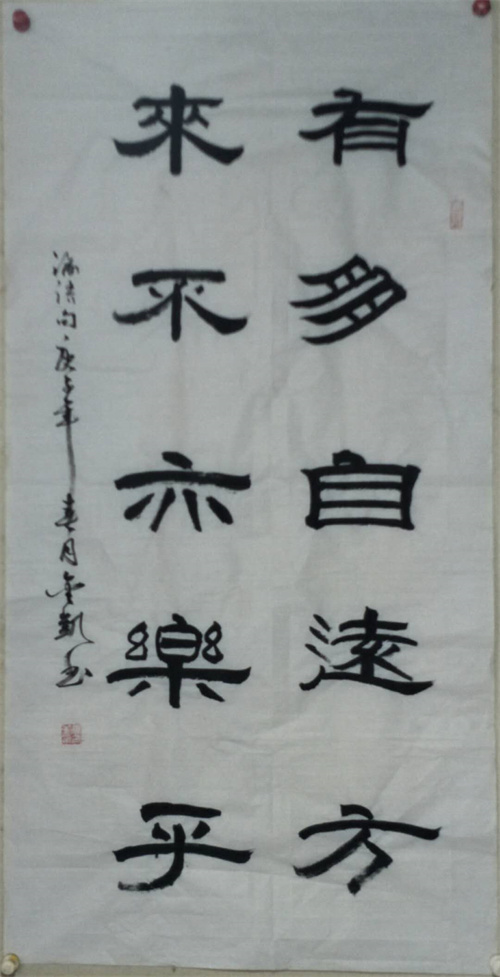 有朋自遠方
來不亦樂乎
論語句庚子年春月金凱書